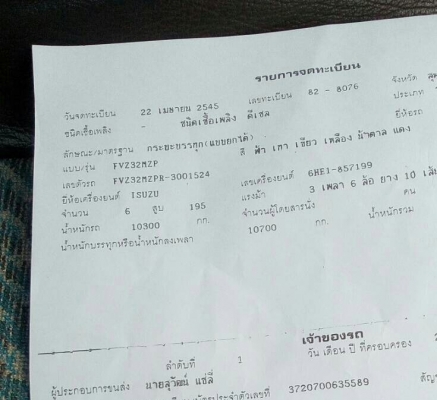 รายการจดทะเบียน
วันจดทะเบียน 22 เมษายน 2545 เลขทะเบียน 82 - 8076 จังหวัด
ชนิดเชื้อเพลิง - ชนิดเชื้อเพลิง ดีเซล ประเภท
ลักษณะ/มาตรฐาน กระบะบรรทุก(แบบยกได้) ยี่ห้อรถ
แบบ/รุ่น FVZ32MZP สี ฟ้า เทา เขียว เหลือง น้ำตาล แดง
เลขตัวรถ FVZ32MZPR-3001524 เลขเครื่องยนต์ 6HE1-857199
ยี่ห้อเครื่องยนต์ ISUZU 3 เพลา 6 ล้อ ยาง 10 เส้น
จำนวน 6 สูบ 195 แรงม้า จำนวนผู้โดยสารนั่ง คน
น้ำหนักรถ 10300 กก. 10700 กก. น้ำหนักรวม
น้ำหนักบรรทุกหรือน้ำหนักลงเพลา
เจ้าของรถ
ลำดับที่ 1 วัน เดือน ปี ที่ครอบครอง
ผู้ประกอบการขนส่ง นายสุวัฒน์ แซ่ลี้
3720700635589